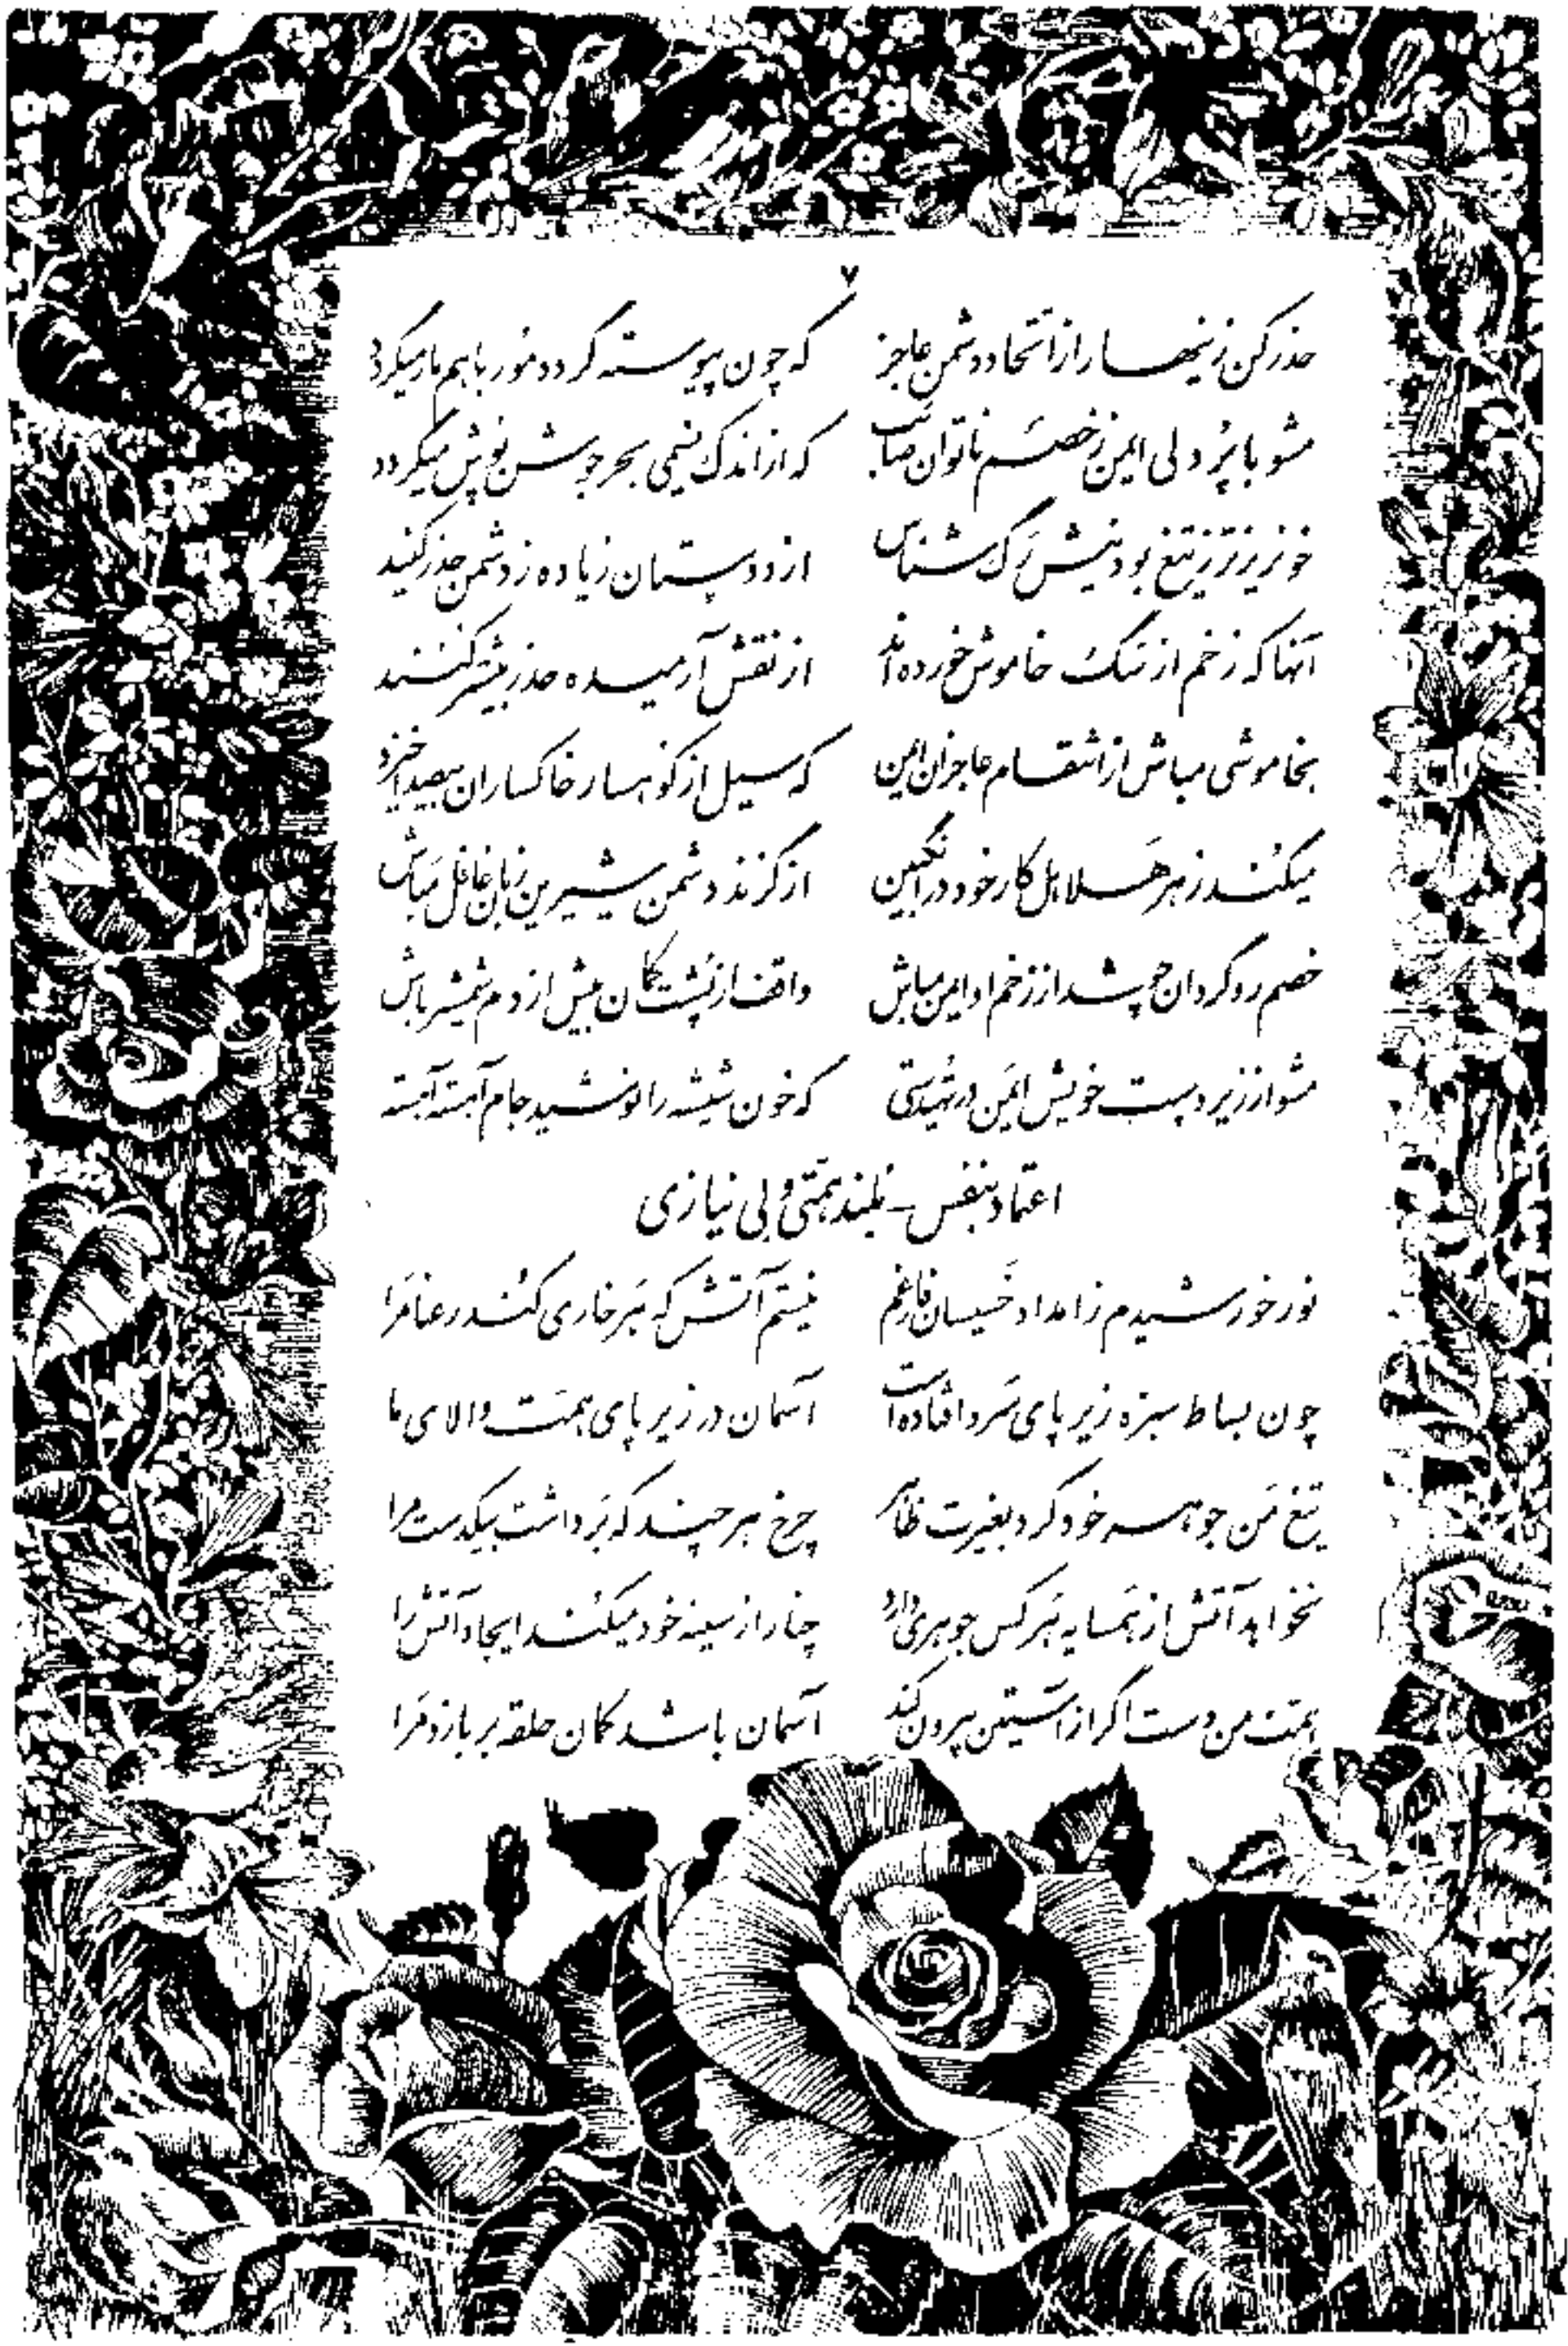 ۷
حذر کن زینهار از اتحاد دشمن عاجز که چون پیوسته گردد مور با هم مار میگردد
مشو با پُر دلی ایمن ز خصم ناتوان صائب که از اندک نسیمی بحر جوشن پوش میگردد
خونریزتر ز تیغ بود نیش رگ شناس از دوستان زیاده ز دشمن حذر کنید
آنها که زخم از سگ خاموش خورده‌اند از نقش آرمیده حذر بیشتر کنند
بخاموشی مباش از انتقام عاجزان ایمن که سیل از کوهسار خاکساران بیصدا خیزد
میکُند زهر هلاهل کار خود در انگبین از گزند دشمن شیرین زبان غافل مباش
خصم روگردان چو شد از زخم او ایمن مباش واقف از پُشت کمان بیش از دم شمشیر باش
مشو از زیر دست خویش ایمن در تهیدستی که خون شیشه را نوشید جام آهسته آهسته
اعتماد بنفس - بلند همتی و بی نیازی
نور خورشیدم ز امداد خسیسان فارغم نیستم آتش که هر خاری کُند رعنا مَرا
چون بساط سبزه زیر پای سَرو افتاده است آسمان در زیر پای همت والای ما
تیغ مَن جوهر خود کرد بغیرت ظاهر چرخ هر چند که بَرداشت بیکدست مرا
نخواهد آتش از همسایه هَر کس جوهری دارد چنار از سینه خود میکُند ایجاد آتش را
همت من دست اگر از آستین بیرون کند آسمان باشد کمان حلقه بر بازو مَرا